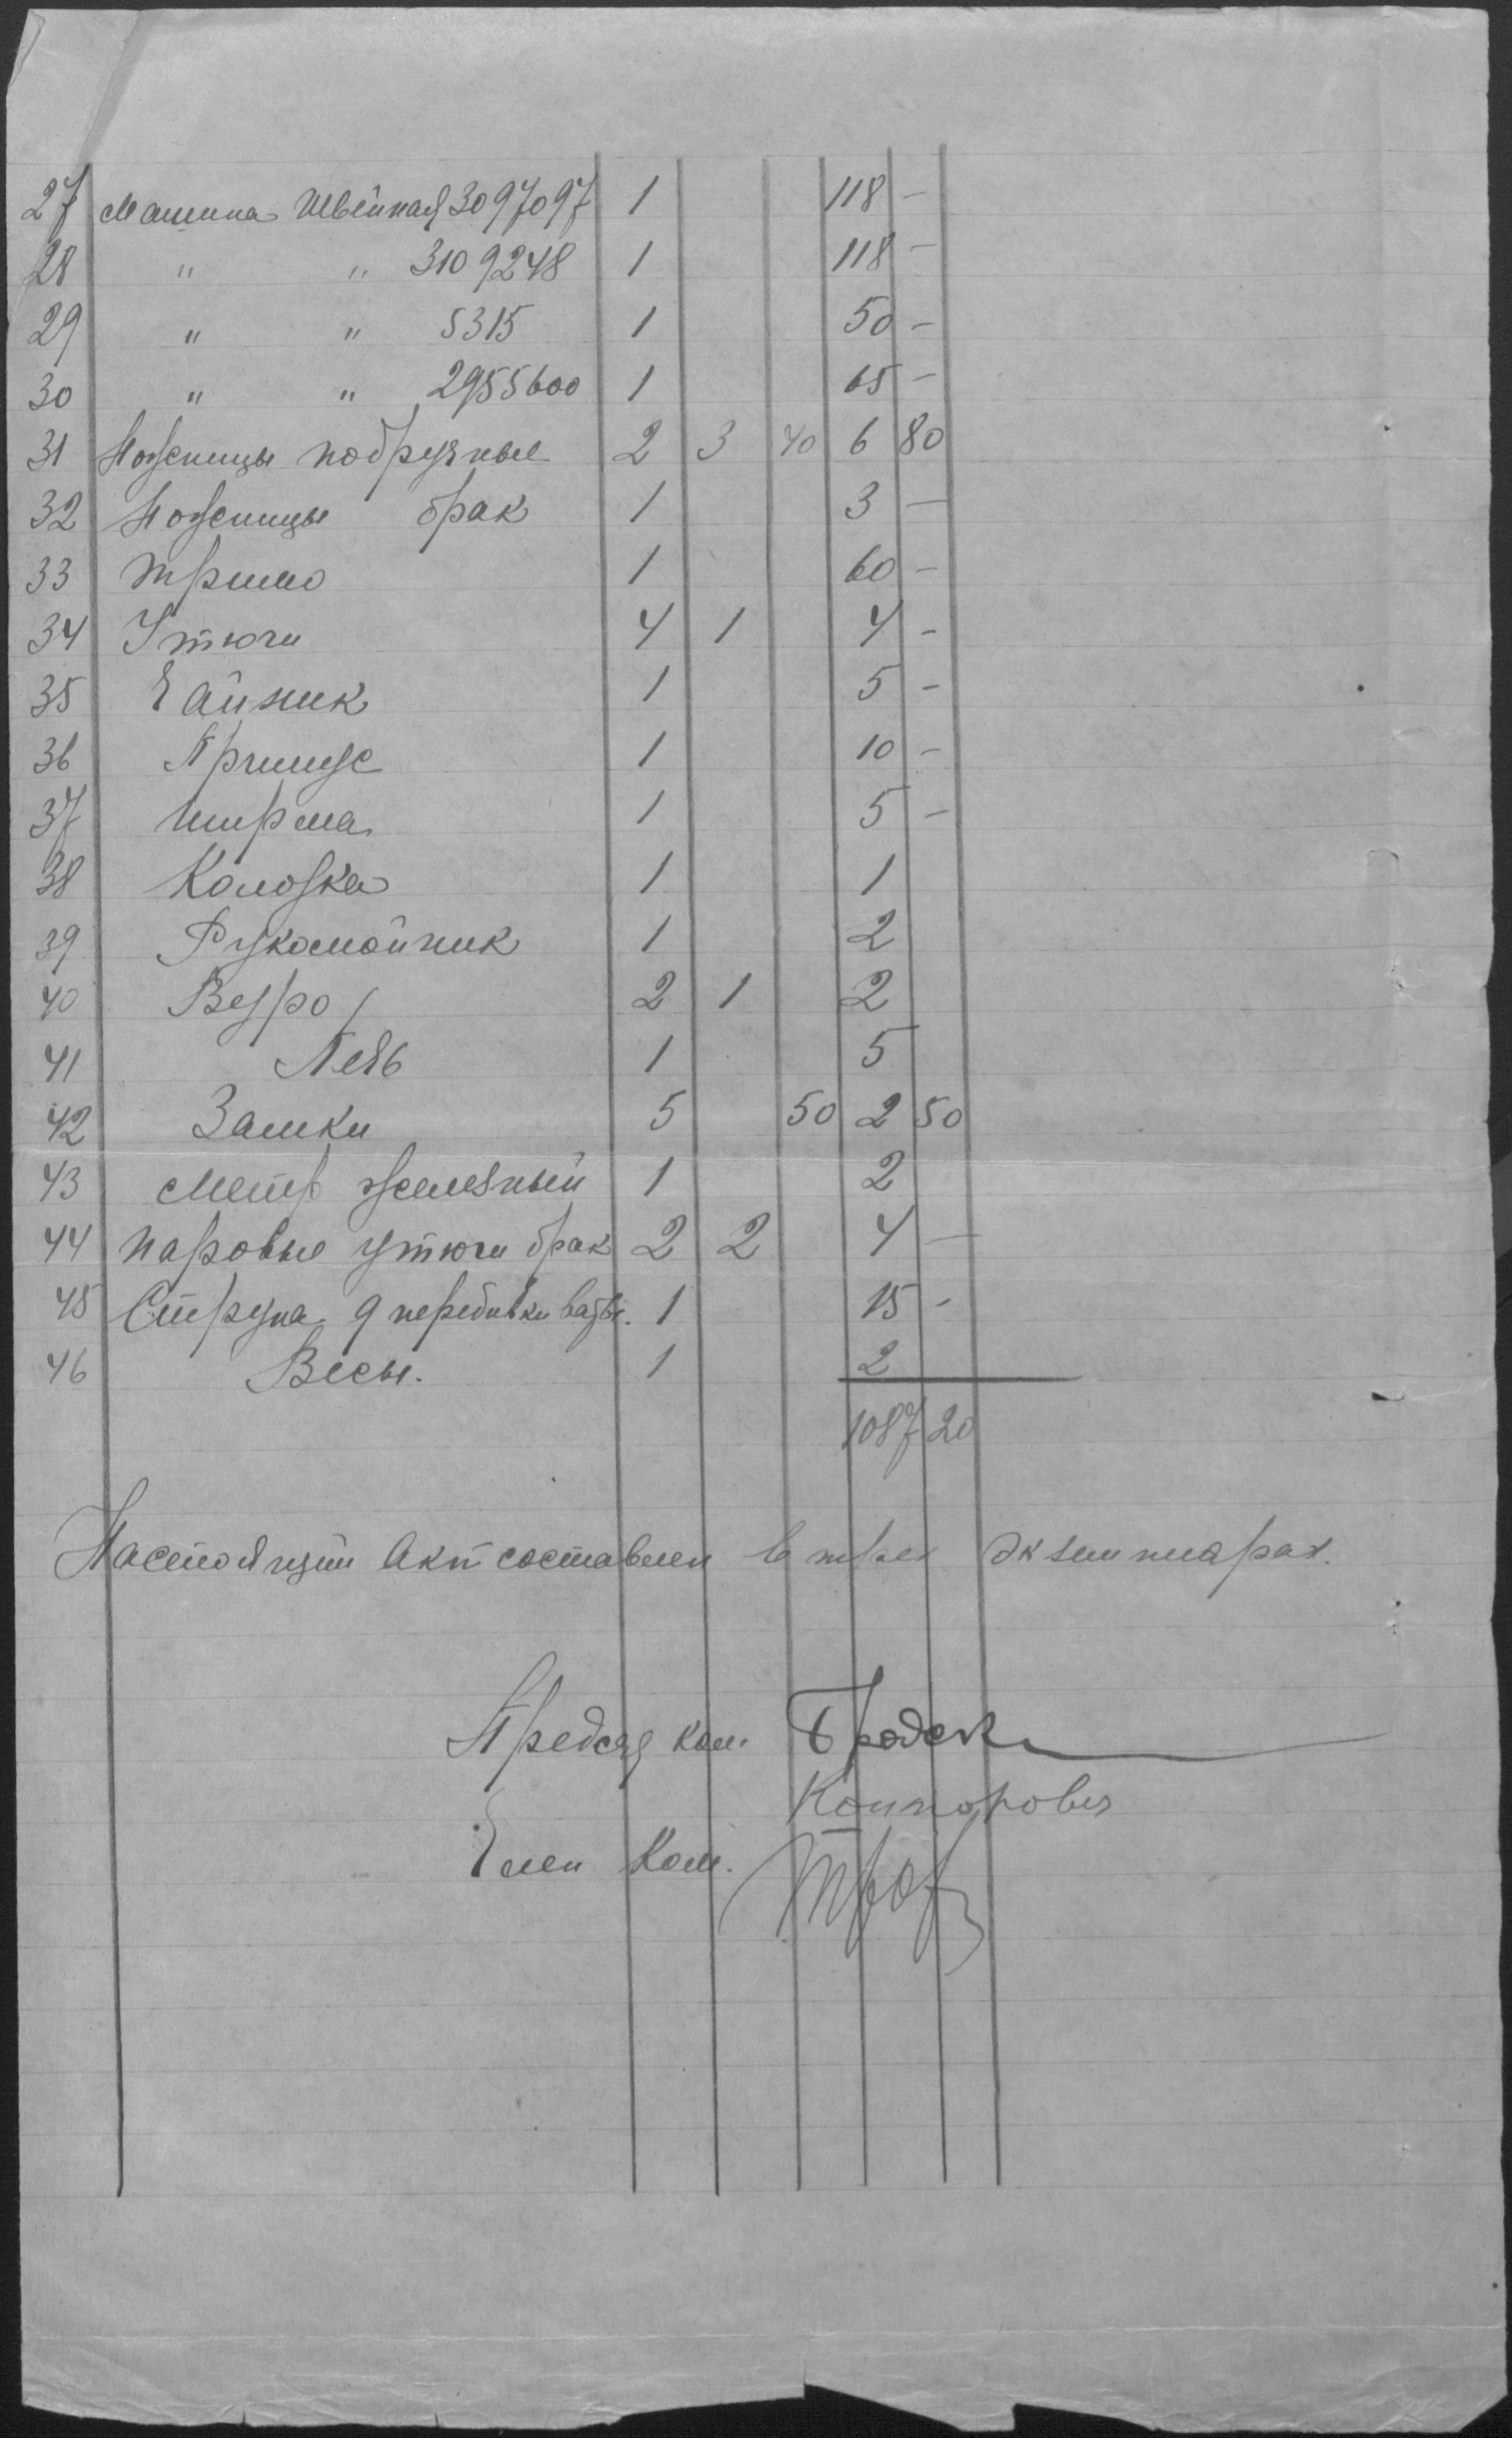 27 Машина Швейная 3097097 1 118 -
28 " " 3109248 1 118 -
29 " " 5315 1 50 -
30 " " 2955600 1 65 -
31 Ножницы подручные 2 3 40 6 80
32 Ножницы брак 1 3 -
33 Трюмо 1 60 -
34 Утюги 4 1 4 -
35 Чайник 1 5 -
36 Примус 1 10 -
37 Ширма 1 5 -
38 Колодка 1 1
39 Рукомойник 1 2
40 Ведро 2 1 2
41 Печь 1 5
42 Замки 5 50 2 50
43 Метр железный 1 2
44 паровые утюги брак 2 2 4 -
45 Струна д перебивки ваты. 1 15 -
46 Весы. 1 2
1087 20
Настоящий Акт составлен в трех экземплярах.
Председ ком. Бродск
Канторович
Член Ком.